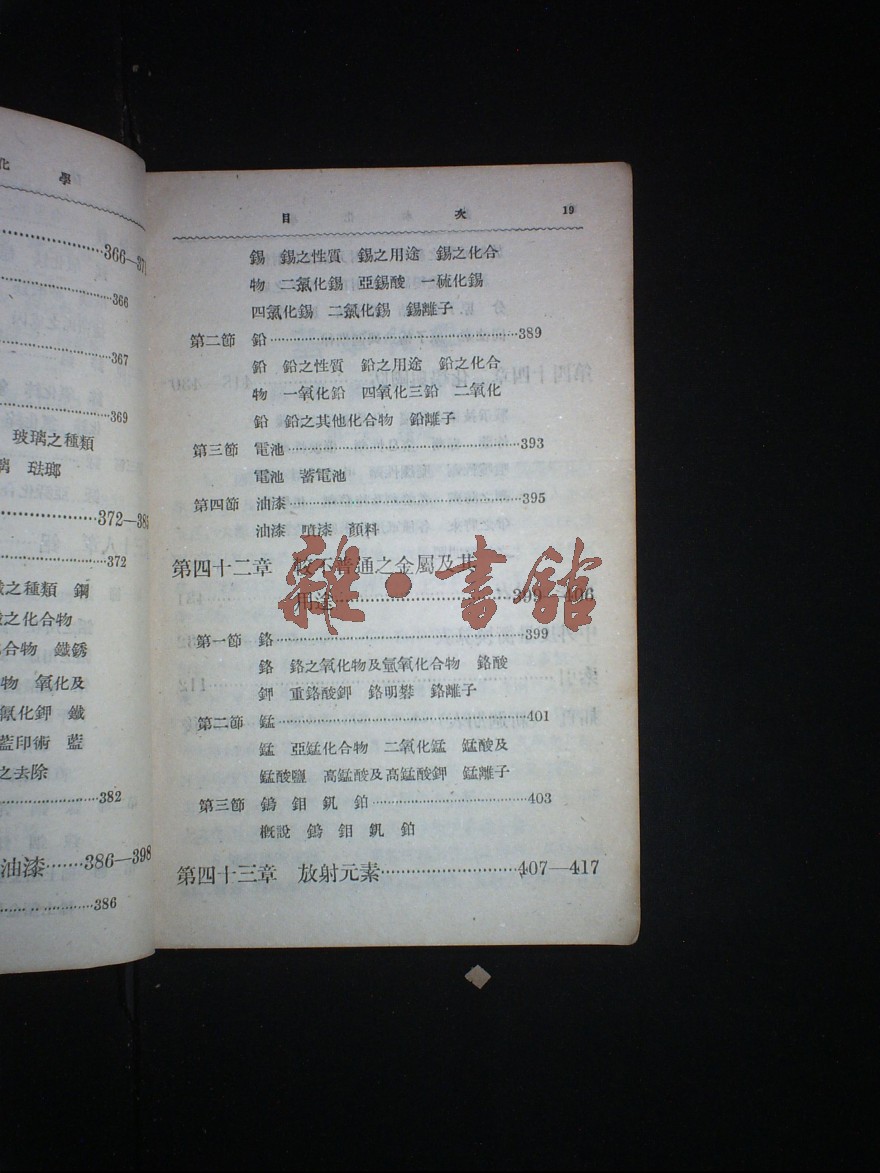 化 學
366—371
366
367
369
玻璃之種類
璃 琺瑯
372—385
372
鐵之種類 鋼
鐵之化合物
化合物 鐵銹
物 氧化及
氰化鉀 鐵
藍印術 藍
之去除
382
油漆……386—398
386
目 次 19
錫 錫之性質 錫之用途 錫之化合
物 二氯化錫 亞錫酸 一硫化錫
四氯化錫 二氯化錫 錫離子
第二節 鉛……389
鉛 鉛之性質 鉛之用途 鉛之化合
物 一氧化鉛 四氧化三鉛 二氧化
鉛 鉛之其他化合物 鉛離子
第三節 電池……393
電池 蓄電池
第四節 油漆……395
油漆 噴漆 顏料
第四十二章 較不普通之金屬及其
用途……399—406
雜·書館
第一節 鉻……399
鉻 鉻之氧化物及氫氧化合物 鉻酸
鉀 重鉻酸鉀 鉻明礬 鉻離子
第二節 錳……401
錳 亞錳化合物 二氧化錳 錳酸及
錳酸鹽 高錳酸及高錳酸鉀 錳離子
第三節 鎢 鉬 釩 鉑……403
概說 鎢 鉬 釩 鉑
第四十三章 放射元素……407—417